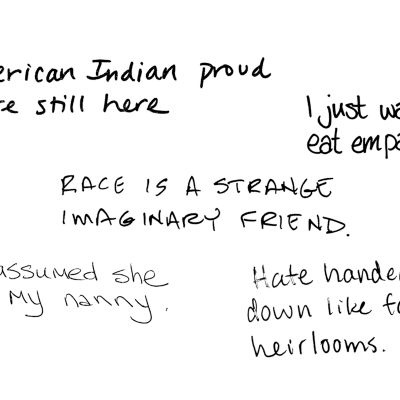 erican Indian proud
re still here
I just wa
eat empa
RACE IS A STRANGE
IMAGINARY FRIEND.
assumed she
My nanny.
Hate hande
down like fa
heirlooms.